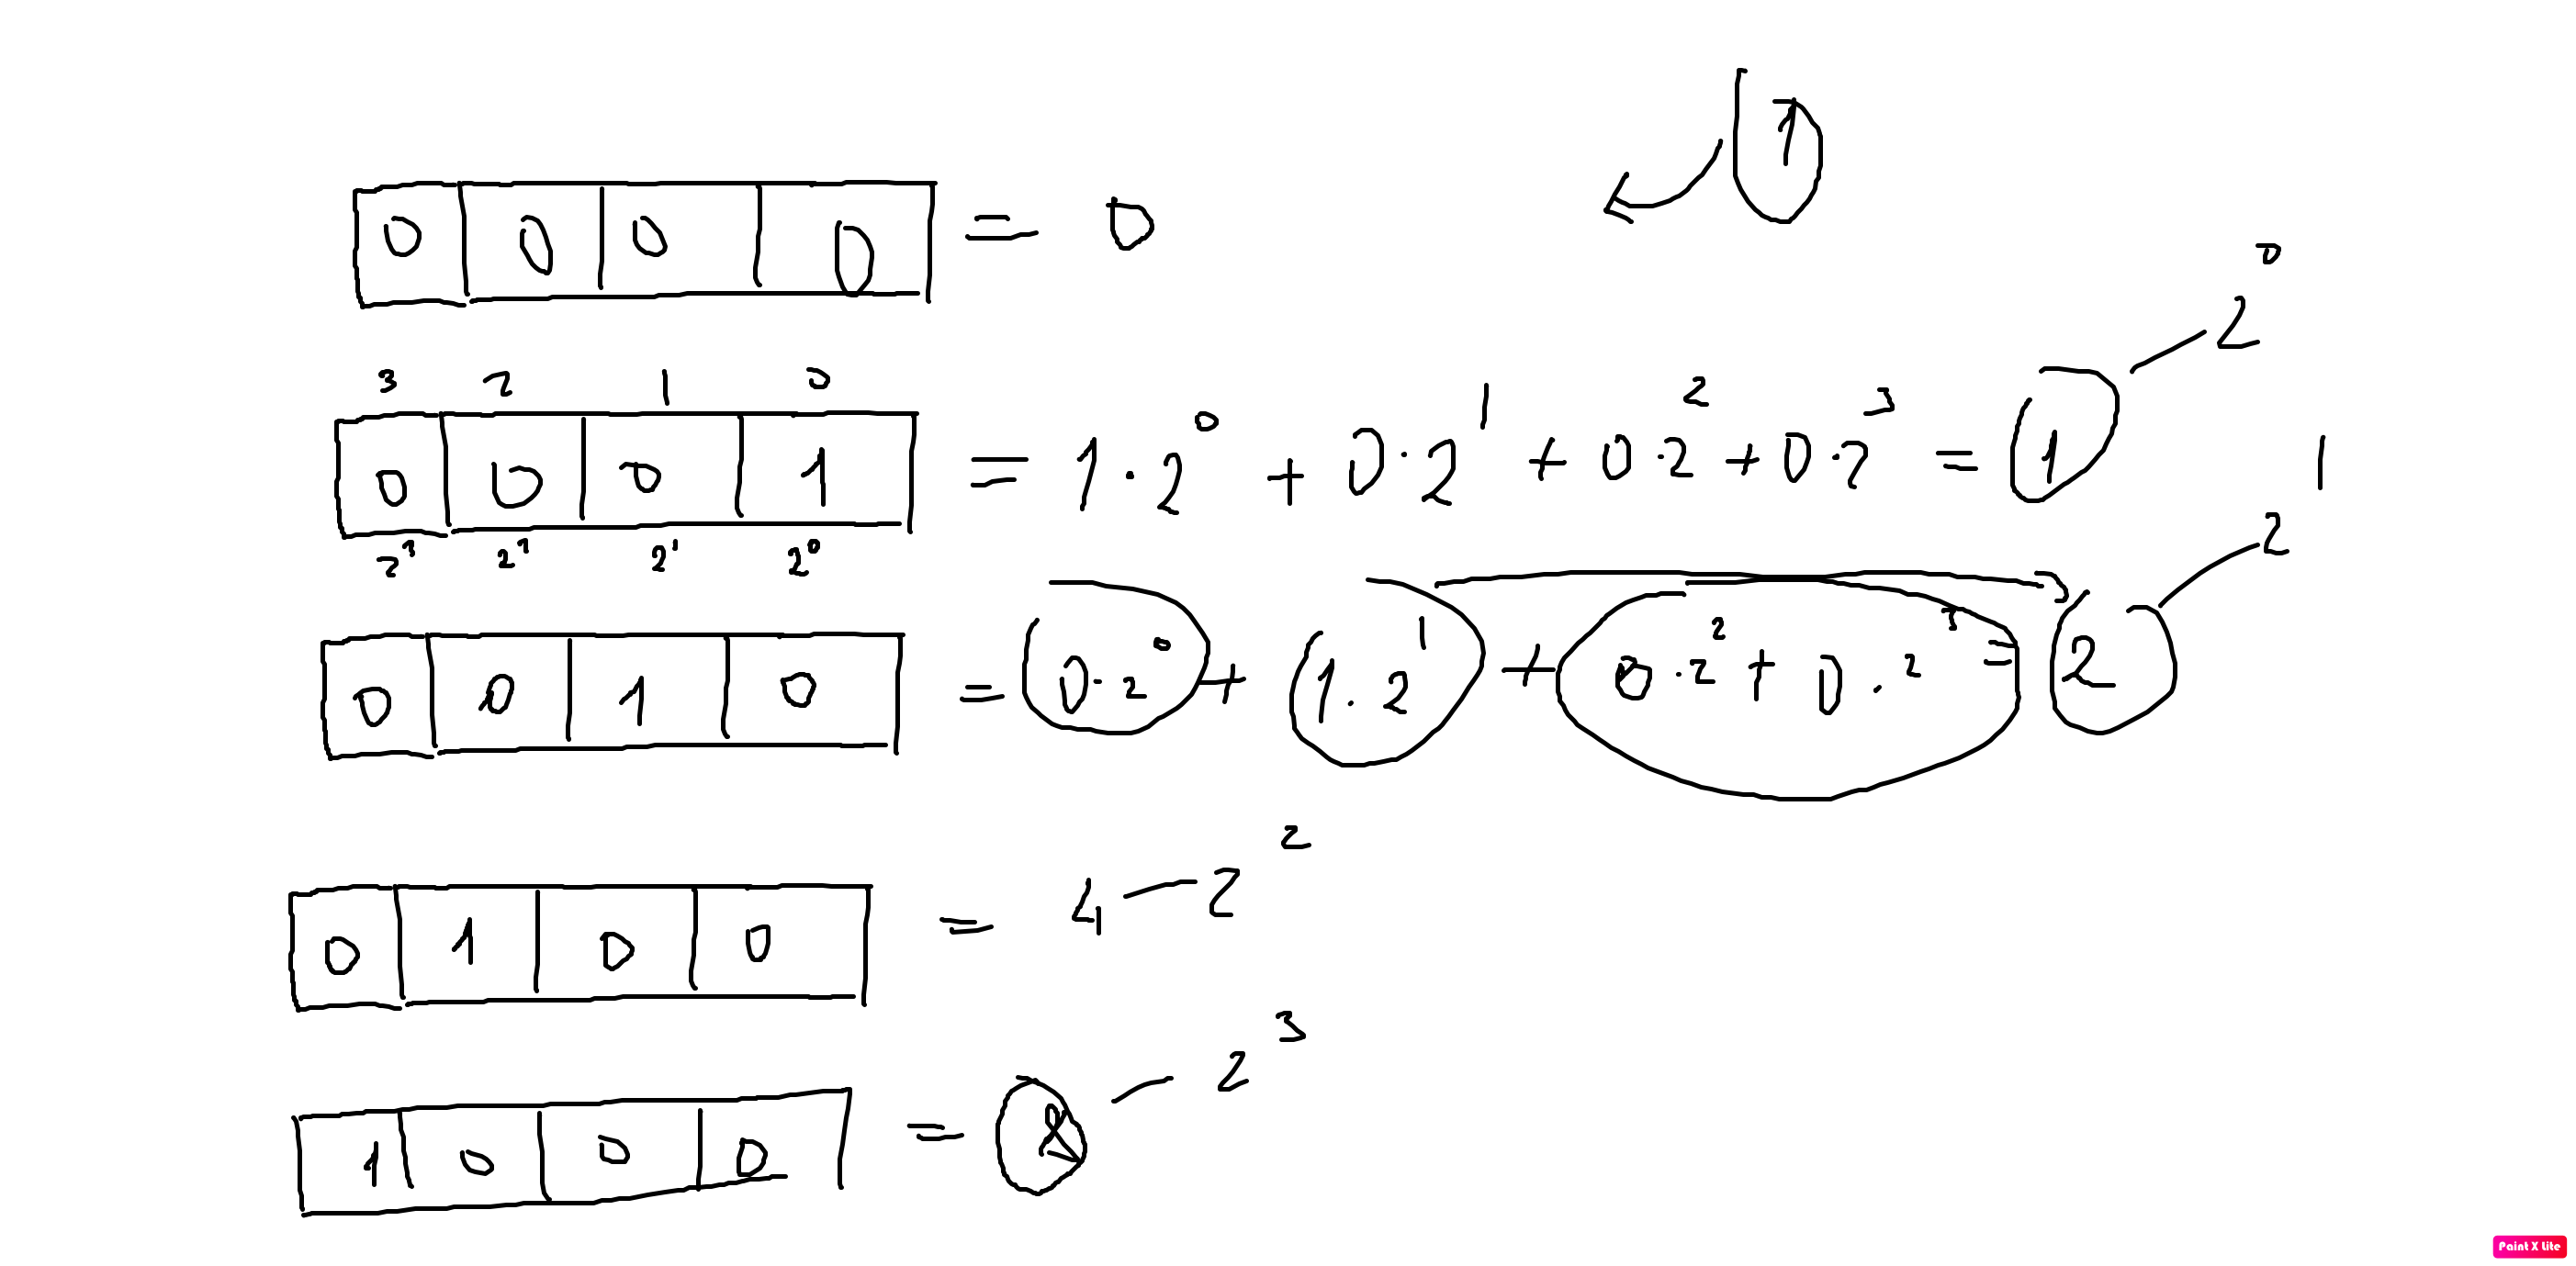 1
0 0 0 0 = 0
3 2 1 0
0 0 0 1 = 1 · 2⁰ + 0 · 2¹ + 0 · 2² + 0 · 2³ = 1 2⁰
2³ 2² 2¹ 2⁰
0 0 1 0 = 0 · 2⁰ + 1 · 2¹ + 0 · 2² + 0 · 2³ = 2 2¹
0 1 0 0 = 4 — 2²
1 0 0 0 = 8 — 2³
Paint X Lite